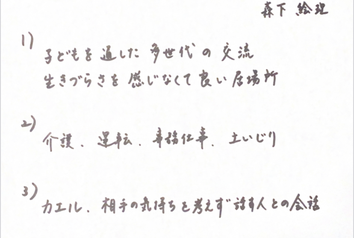 森下 絵理
1)
子どもを通した 多世代の交流
生きづらさを感じなくて良い居場所
2)
介護、運転、事務仕事、土いじり
3)
カエル、相手の気持ちを考えず話す人との会話